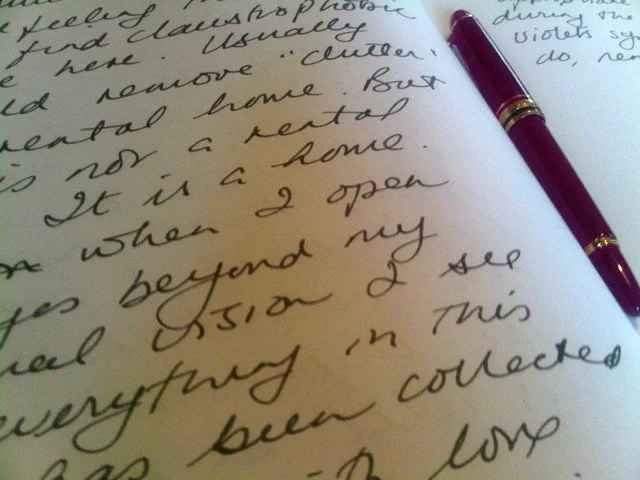 feeling
find claustrophobic
here. Usually
remove "clutter"
rental home. But
is not a rental
It is a home.
when I open
beyond my
vision I see
everything in this
has been collected
love
during the
violets
do,